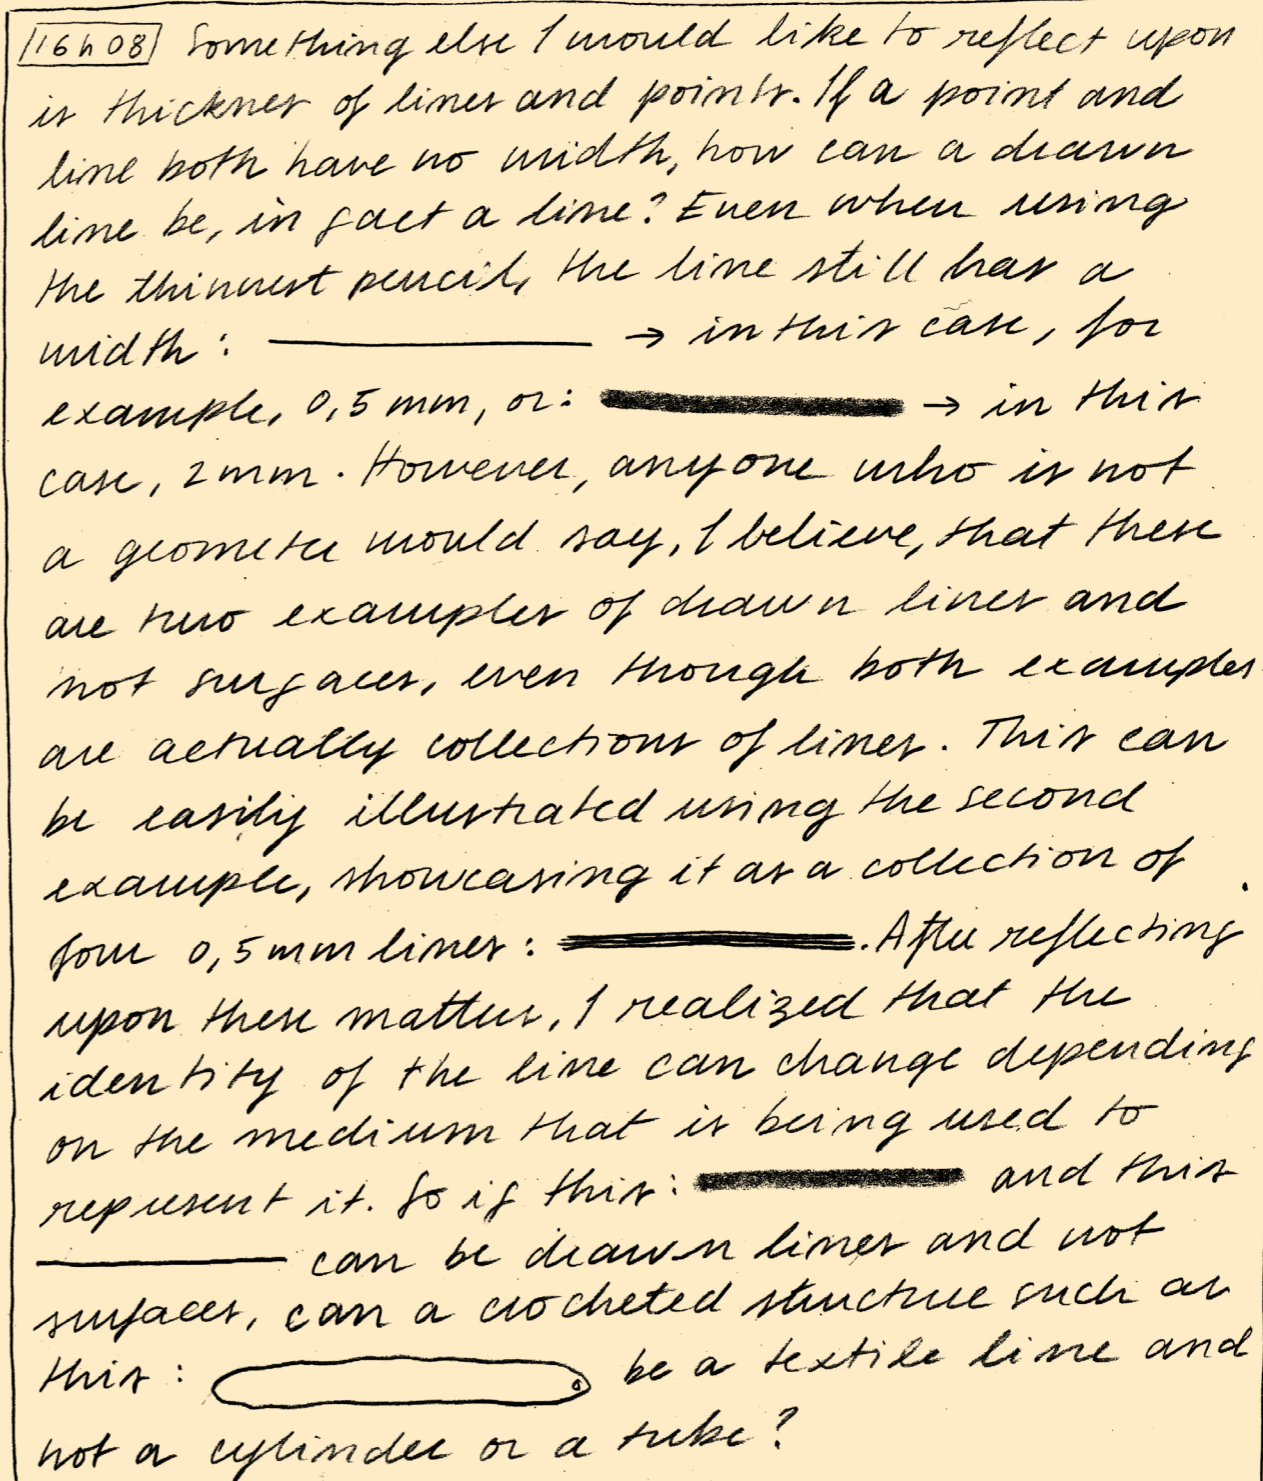 16h08 Something else I would like to reflect upon
is thicknes of lines and points. If a point and
line both have no width, how can a drawn
line be, in fact a line? Even when using
the thinnest pencil, the line still has a
width: → in this case, for
example, 0,5 mm, or: → in this
case, 2 mm. However, anyone who is not
a geometer would say, I believe, that these
are two examples of drawn lines and
not surfaces, even though both examples
are actually collections of lines. This can
be easily illustrated using the second
example, showcasing it as a collection of
four 0,5 mm lines: . After reflecting
upon these matters, I realized that the
identity of the line can change depending
on the medium that is being used to
represent it. So if this: and this
can be drawn lines and not
surfaces, can a crocheted structure such as
this: be a textile line and
not a cylinder or a tube?